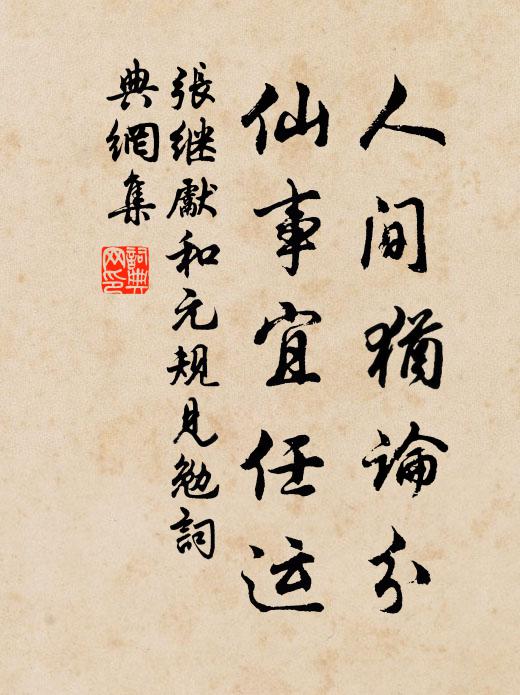 人间猶論分
仙事宜任运
張继獻和元規見勉詞
典網集
詞典网印